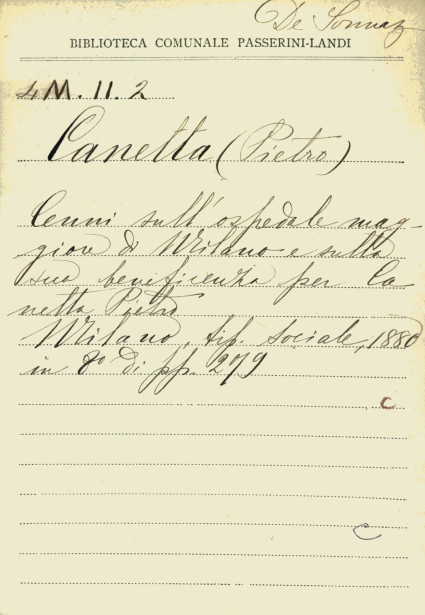 De Sonnaz
BIBLIOTECA COMUNALE PASSERINI-LANDI
4 M. II. 2
Canetta (Pietro)
Cenni sull'ospedale mag-
giore di Milano e sulla
sua beneficenza per Ca-
netta Pietro
Milano, tip. sociale, 1880
in 8º di pp. 279
C
C